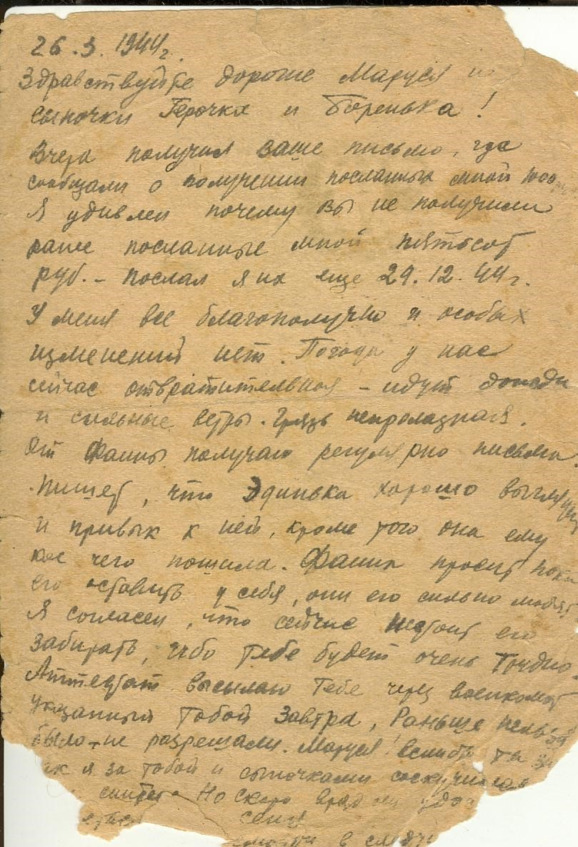 26.3.1944г.
Здравствуйте дорогие Маруся и
сыночки Герочка и Боренька!
Вчера получил ваше письмо, где
сообщали о получении посланных мной
Я удивлен почему вы не получили
ранее посланные мной пятьсот
руб. – послал я их еще 29.12.44г.
У меня все благополучно и особых
изменений нет. Погода у нас
сейчас отвратительная – идут дожди
и сильные ветры. Грязь непролазная.
От Фаины получаю регулярно письма.
Пишет, что Эдинька хорошо
и привык к ней, кроме того она ему
кое чего пошила. Фаина просит пока
его оставить у себя, они его сильно любят
Я согласен, что сейчас его
забирать, ибо тебе будет очень трудно.
Аттестат высылаю тебе через военкомат
указанный тобой завтра, Раньше нельзя
было – не разрешали. Маруся! ты
как я за тобой и сыночками соскучился
Но скоро
в